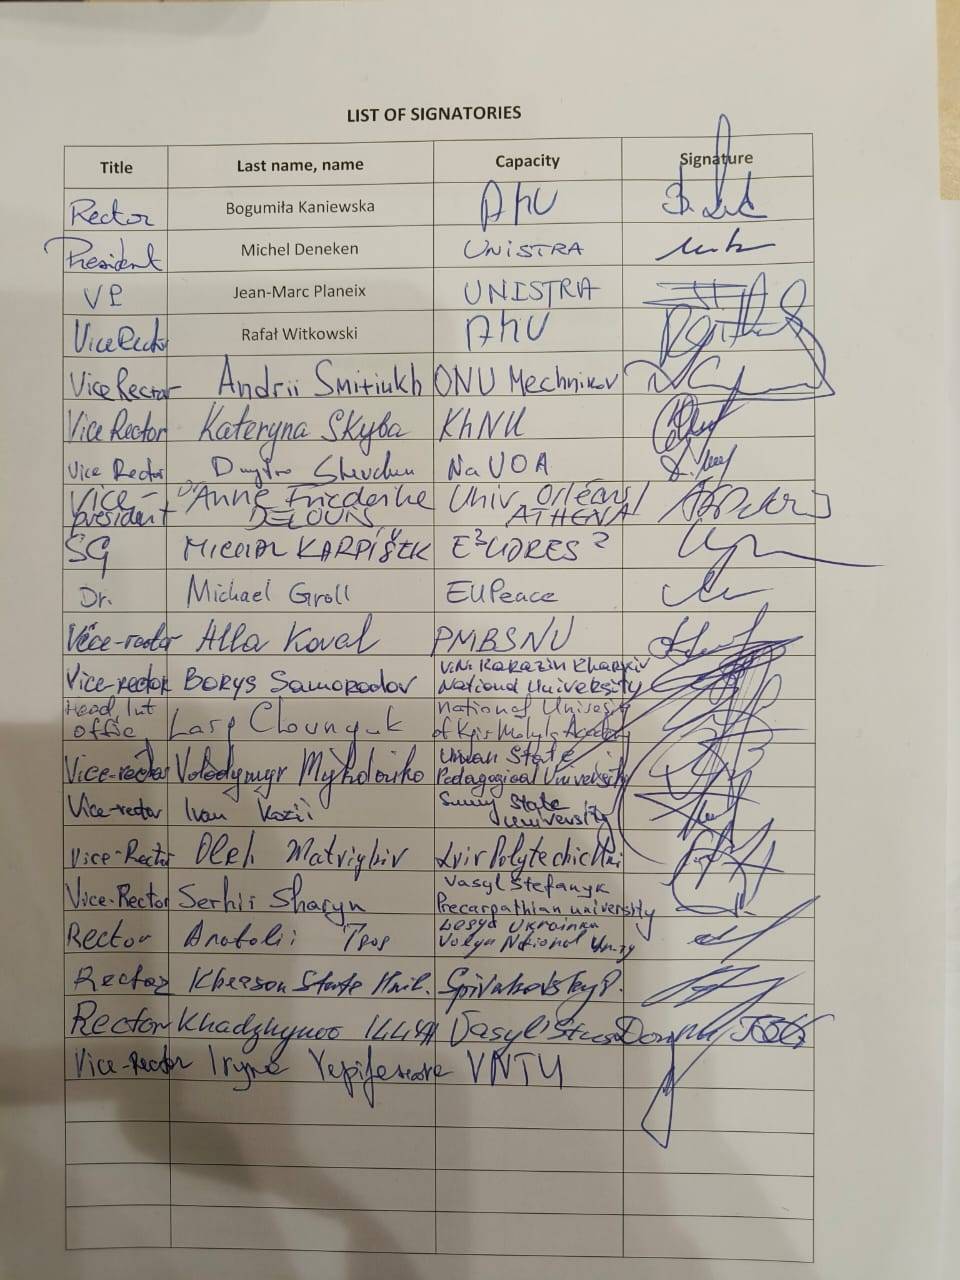 LIST OF SIGNATORIES
Title Last name, name Capacity Signature
Rector Bogumiła Kaniewska AMU
President Michel Deneken UNISTRA
VP Jean-Marc Planeix UNISTRA
Vice Rector Rafał Witkowski AMU
Vice Rector Andrii Smitiukh ONU Mechnikov
Vice Rector Kateryna Skyba KhNU
Vice Rector Dmytro NaUOA
Vice-president Anne Friederike DELOUIS Univ. Orléans/ ATHENA
SG MICHAL KARPÍŠEK E³UDRES²
Dr. Michael Groll EUPeace
Vice-rector Alla Koval PMBSNU
Vice-rector Borys Samorodov V.N. Karazin Kharkiv National University
Head, Int offic. National University of Kyiv-Mohyla Academy
Vice-rector Volodymyr Mykolaiko Uman State Pedagogical University
Vice-rector Ivan Kozii Sumy State University
Vice-Rector Oleh Matviykiv Lviv Polytechic
Vice-Rector Serhii Sharyn Vasyl Stefanyk Precarpathian university
Rector Anatolii Tsos Lesya Ukrainka Volyn National
Rector Kherson State Univ. Spivakovsky
Rector Vasyl Stus
Vice-Rector Iryna VNTU